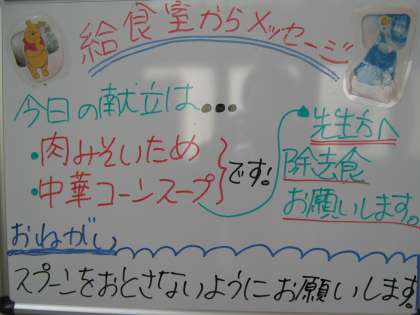 給食室からメッセージ
今日の献立は...
・肉みそいため
・中華コーンスープ
です!
先生方へ
除去食
お願いします。
おねがい
スプーンをおとさないようにお願いします!